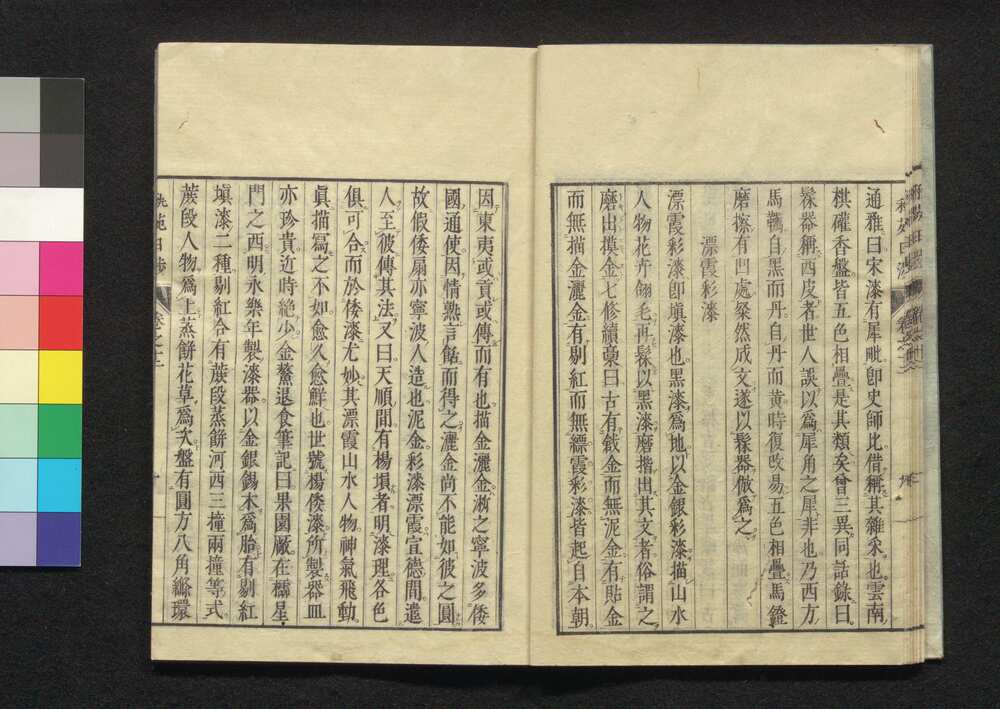 通雅曰宋漆有犀毗卽史師比借稱其雜采也雲南
棋礶香盤皆五色相疊是其類矣曾三異同話錄曰
髹器稱西皮者世人誤以爲犀角之犀非也乃西方
馬韉自黒而丹自丹而黃時復改易五色相疊馬鐙
磨擦有凹處粲然成文遂以髹器倣爲之
漂霞彩漆
漂霞彩漆卽塡漆也黒漆爲地以金銀彩漆描山水
人物花卉翎毛再髹以黒漆磨揩出其文者俗謂之
磨出摸金七修續稾曰古有戧金而無泥金有貼金
而無描金灑金有剔紅而無縹霞彩漆皆起自本朝
因東夷或貢或傳而有也描金灑金浙之寧波多倭
國通使因情熟言餂而得之灑金尚不能如彼之圓
故假倭扇亦寧波人造也泥金彩漆漂霞宣德間遣
人至彼傳其法又曰天順間有楊塤者明漆理各色
俱可合而於倭漆尤妙其漂霞山水人物神氣飛動
眞描冩之不如愈久愈鮮也世號楊倭漆所製器皿
亦珍貴近時絶少金鰲退食筆記曰果園厰在櫺星
門之西明永樂年製漆器以金銀錫木爲胎有剔紅
塡漆二種剔紅合有蔗段蒸餠河西三撞兩撞等式
蔗段人物爲上蒸餠花草爲次盤有圓方八角縧環